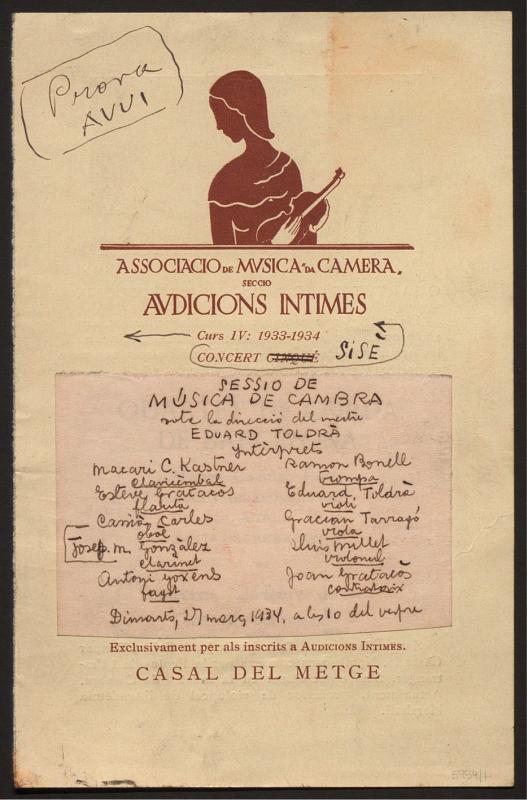 Prova
AVUI
ASSOCIACIO DE MVSICA "DA CAMERA"
SECCIO
AVDICIONS INTIMES
Curs IV: 1933-1934
CONCERT CINQUÈ SISÈ
SESSIO DE
MÚSICA DE CAMBRA
sota la direcció del mestre
EDUARD TOLDRÀ
Intèrprets
Macari C. Kastner Ramon Bonell
clavicémbal trompa
Esteve Gratacós Eduard Toldrà
flauta violí
Cassià Carles Gracian Tarragó
oboè viola
Josep M. Gonzàlez Lluis Millet
clarinet violoncel
Antoni Goxens Joan Gratacòs
fagot contrabaix
Dimarts, 27 març 1934, a les 10 del vespre
Exclusivament per als inscrits a AUDICIONS INTIMES.
CASAL DEL METGE
5954/1